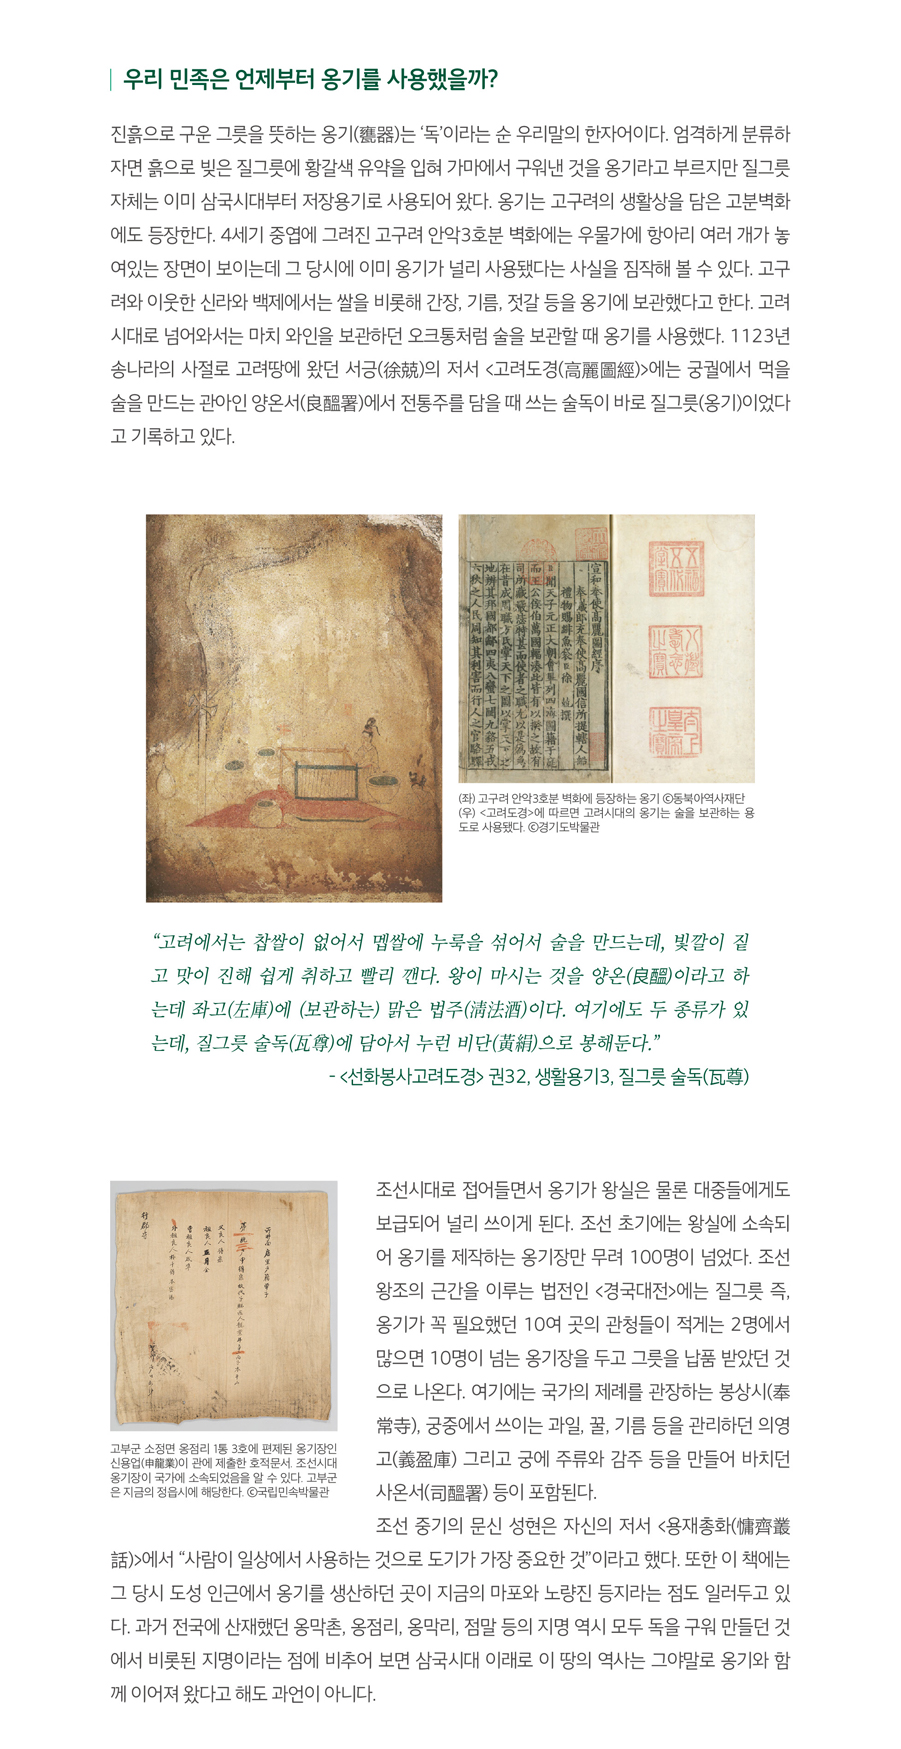 우리 민족은 언제부터 옹기를 사용했을까?
진흙으로 구운 그릇을 뜻하는 옹기(甕器)는 ‘독’이라는 순 우리말의 한자어이다. 엄격하게 분류하
자면 흙으로 빚은 질그릇에 황갈색 유약을 입혀 가마에서 구워낸 것을 옹기라고 부르지만 질그릇
자체는 이미 삼국시대부터 저장용기로 사용되어 왔다. 옹기는 고구려의 생활상을 담은 고분벽화
에도 등장한다. 4세기 중엽에 그려진 고구려 안악3호분 벽화에는 우물가에 항아리 여러 개가 놓
여있는 장면이 보이는데 그 당시에 이미 옹기가 널리 사용됐다는 사실을 짐작해 볼 수 있다. 고구
려와 이웃한 신라와 백제에서는 쌀을 비롯해 간장, 기름, 젓갈 등을 옹기에 보관했다고 한다. 고려
시대로 넘어와서는 마치 와인을 보관하던 오크통처럼 술을 보관할 때 옹기를 사용했다. 1123년
송나라의 사절로 고려땅에 왔던 서긍(徐兢)의 저서 <고려도경(高麗圖經)>에는 궁궐에서 먹을
술을 만드는 관아인 양온서(良醞署)에서 전통주를 담을 때 쓰는 술독이 바로 질그릇(옹기)이었다
고 기록하고 있다.
宣和奉使高麗圖經序
奉議郎充奉使高麗國信所提轄人船
禮物賜緋魚袋臣徐 兢 撰
(좌) 고구려 안악3호분 벽화에 등장하는 옹기 ⓒ동북아역사재단
(우) <고려도경>에 따르면 고려시대의 옹기는 술을 보관하는 용
도로 사용됐다. ⓒ경기도박물관
“고려에서는 찹쌀이 없어서 멥쌀에 누룩을 섞어서 술을 만드는데, 빛깔이 짙
고 맛이 진해 쉽게 취하고 빨리 깬다. 왕이 마시는 것을 양온(良醞)이라고 하
는데 좌고(左庫)에 (보관하는) 맑은 법주(淸法酒)이다. 여기에도 두 종류가 있
는데, 질그릇 술독(瓦尊)에 담아서 누런 비단(黃絹)으로 봉해둔다.”
- <선화봉사고려도경> 권32, 생활용기3, 질그릇 술독(瓦尊)
고부군 소정면 옹점리 1통 3호에 편제된 옹기장인
신용업(申龍業)이 관에 제출한 호적문서. 조선시대
옹기장이 국가에 소속되었음을 알 수 있다. 고부군
은 지금의 정읍시에 해당한다. ⓒ국립민속박물관
조선시대로 접어들면서 옹기가 왕실은 물론 대중들에게도
보급되어 널리 쓰이게 된다. 조선 초기에는 왕실에 소속되
어 옹기를 제작하는 옹기장만 무려 100명이 넘었다. 조선
왕조의 근간을 이루는 법전인 <경국대전>에는 질그릇 즉,
옹기가 꼭 필요했던 10여 곳의 관청들이 적게는 2명에서
많으면 10명이 넘는 옹기장을 두고 그릇을 납품 받았던 것
으로 나온다. 여기에는 국가의 제례를 관장하는 봉상시(奉
常寺), 궁중에서 쓰이는 과일, 꿀, 기름 등을 관리하던 의영
고(義盈庫) 그리고 궁에 주류와 감주 등을 만들어 바치던
사온서(司醞署) 등이 포함된다.
조선 중기의 문신 성현은 자신의 저서 <용재총화(慵齊叢
話)>에서 “사람이 일상에서 사용하는 것으로 도기가 가장 중요한 것”이라고 했다. 또한 이 책에는
그 당시 도성 인근에서 옹기를 생산하던 곳이 지금의 마포와 노량진 등지라는 점도 일러두고 있
다. 과거 전국에 산재했던 옹막촌, 옹점리, 옹막리, 점말 등의 지명 역시 모두 독을 구워 만들던 것
에서 비롯된 지명이라는 점에 비추어 보면 삼국시대 이래로 이 땅의 역사는 그야말로 옹기와 함
께 이어져 왔다고 해도 과언이 아니다.